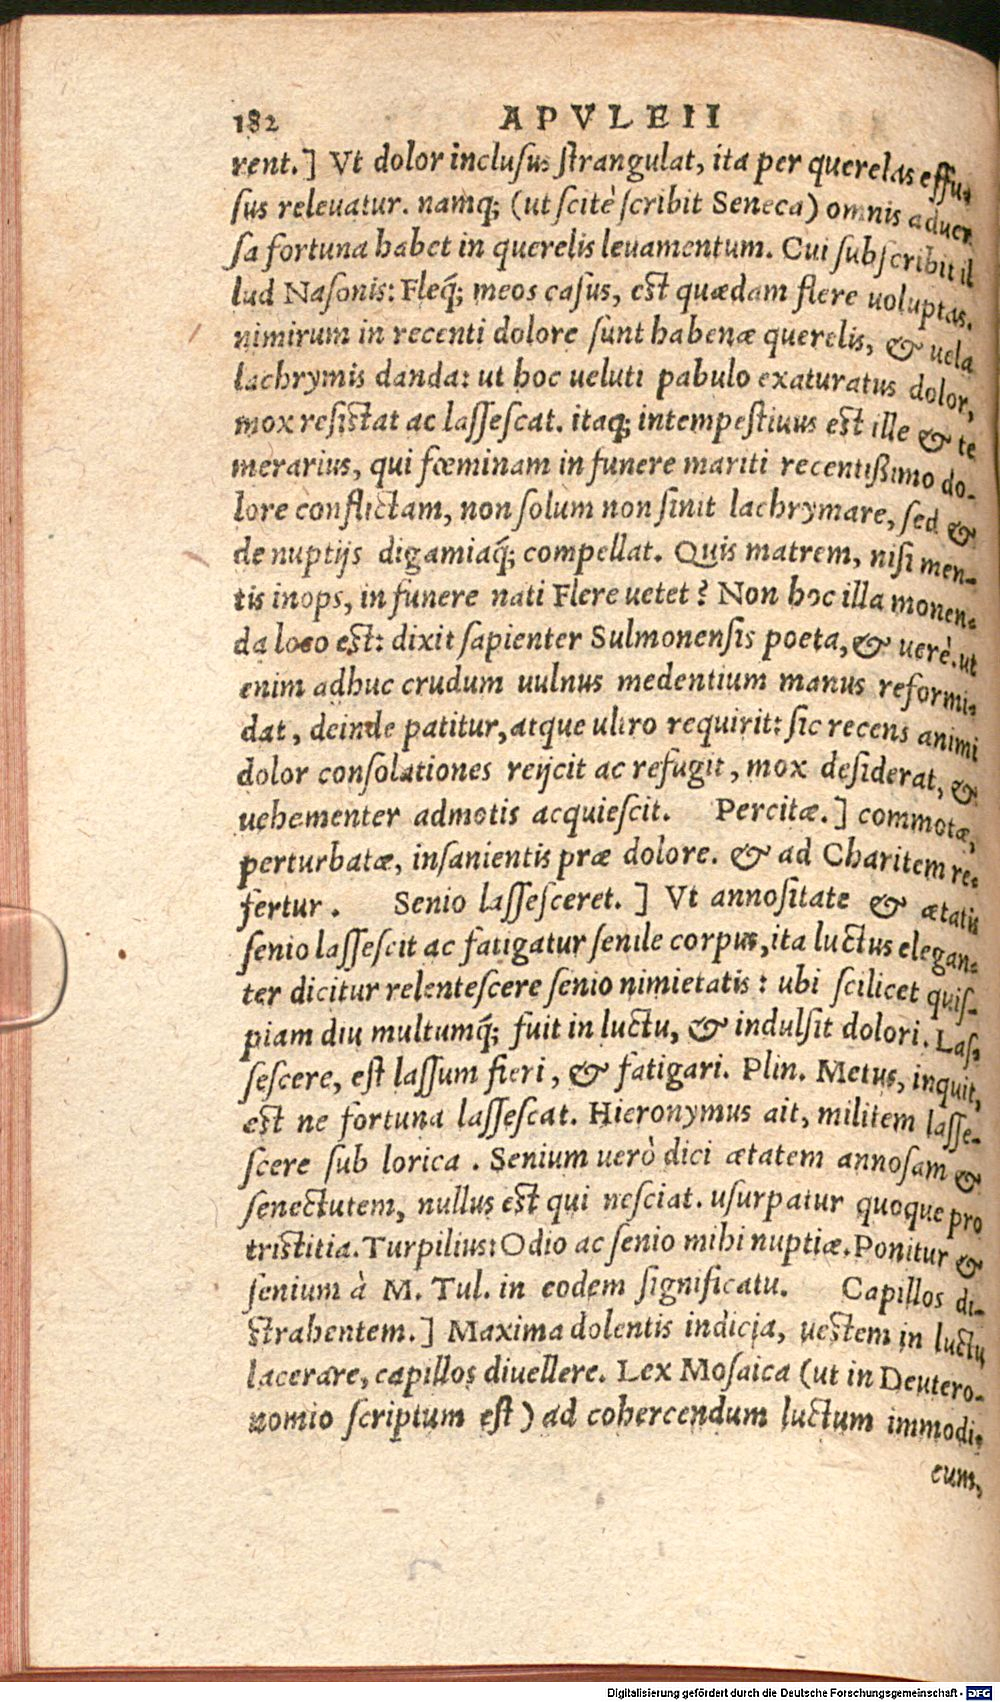 182 APVLEII
rent.] Vt dolor inclusus strangulat, ita per querelas effu-
sus releuatur. namq; (ut scitè scribit Seneca) omnis aduer
sa fortuna habet in querelis leuamentum. Cui subscribit il
lud Nasonis: Fleq́; meos casus, est quædam flere uoluptas.
nimirum in recenti dolore sunt habenæ querelis, & uela
lachrymis danda: ut hoc ueluti pabulo exaturatus dolor,
mox resistat ac lassescat. itaq; intempestiuus est ille & te
merarius, qui fœminam in funere mariti recentißimo do-
lore conflictam, non solum non sinit lachrymare, sed &
de nuptijs digamiaq́; compellat. Quis matrem, nisi men-
tis inops, in funere nati Flere uetet? Non hoc illa monen-
da loco est: dixit sapienter Sulmonensis poeta, & uerè. ut
enim adhuc crudum uulnus medentium manus reformi-
dat, deinde patitur, atque ultro requirit: sic recens animi
dolor consolationes reijcit ac refugit, mox desiderat, &
uehementer admotis acquiescit. Percitæ.] commotæ,
perturbatæ, insanientis præ dolore. & ad Charitem re-
fertur. Senio lassesceret.] Vt annositate & ætatis
senio lassescit ac fatigatur senile corpus, ita luctus elegan-
ter dicitur relentescere senio nimietatis: ubi scilicet quis-
piam diu multumq́; fuit in luctu, & indulsit dolori. Las-
sescere, est lassum fieri, & fatigari. Plin. Metus, inquit,
est ne fortuna lassescat. Hieronymus ait, militem lasse-
scere sub lorica. Senium uerò dici ætatem annosam &
senectutem, nullus est qui nesciat. usurpatur quoque pro
tristitia. Turpilius: Odio ac senio mihi nuptiæ. Ponitur &
senium à M. Tul. in eodem significatu. Capillos di-
strahentem.] Maxima dolentis indicia, uestem in luctu
lacerare, capillos diuellere. Lex Mosaica (ut in Deutero-
nomio scriptum est) ad cohercendum luctum immodi-
cum,
Digitalisierung gefördert durch die Deutsche Forschungsgemeinschaft - DFG